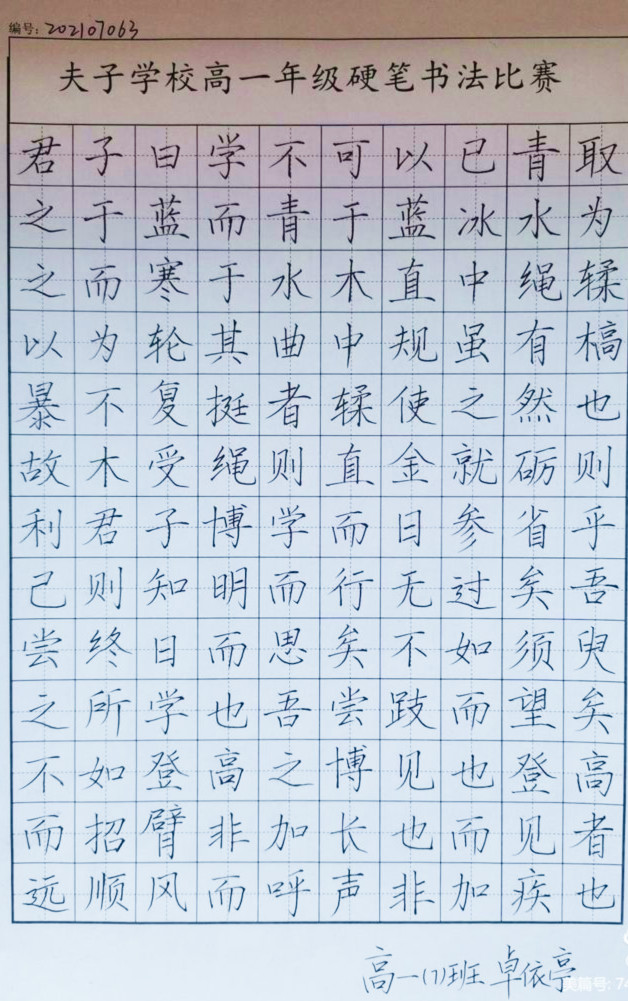 编号: 202107063
夫子学校高一年级硬笔书法比赛
君子曰学不可以已青取
之于蓝而青于蓝冰水为
之而寒于水木直中绳輮
以为轮其曲中规虽有槁
暴不复挺者輮使之然也
故木受绳则直金就砺则
利君子博学而日参省乎
己则知明而行无过矣吾
尝终日而思矣不如须臾
之所学也吾尝跂而望矣
不如登高之博见也登高
而招臂非加长也而见者
远顺风而呼声非加疾也
高一(7)班 卓依亭
美篇号: 74